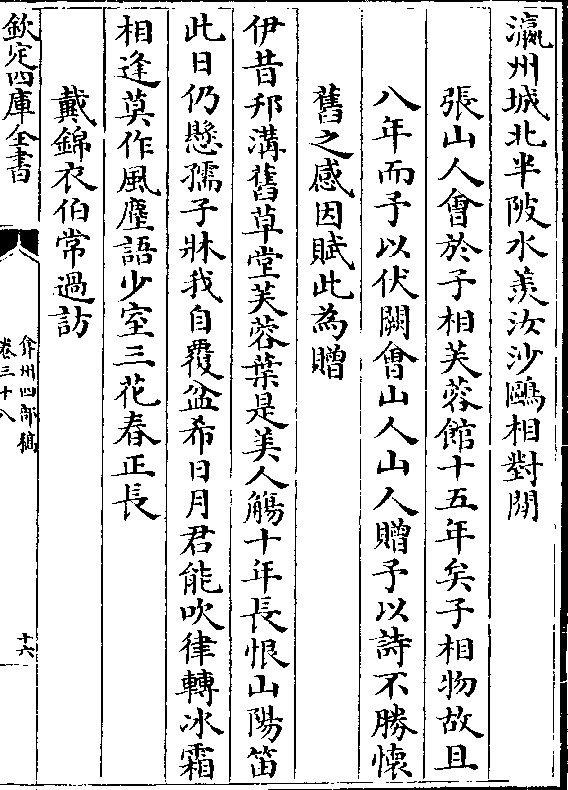 瀛州城北半陂水羨汝沙鷗相對閒
張山人會於子相芙蓉館十五年矣子相物故且
八年而予以伏闕會山人山人贈予以詩不勝懷
舊之感因賦此為贈
伊昔邗溝舊草堂芙蓉葉是美人觴十年長恨山陽笛
此日仍懸孺子牀我自覆盆希日月君能吹律轉冰霜
相逢莫作風塵語少室三花春正長
戴錦衣伯常過訪
欽定四庫全書
弇州四部稿
卷三十八
十六